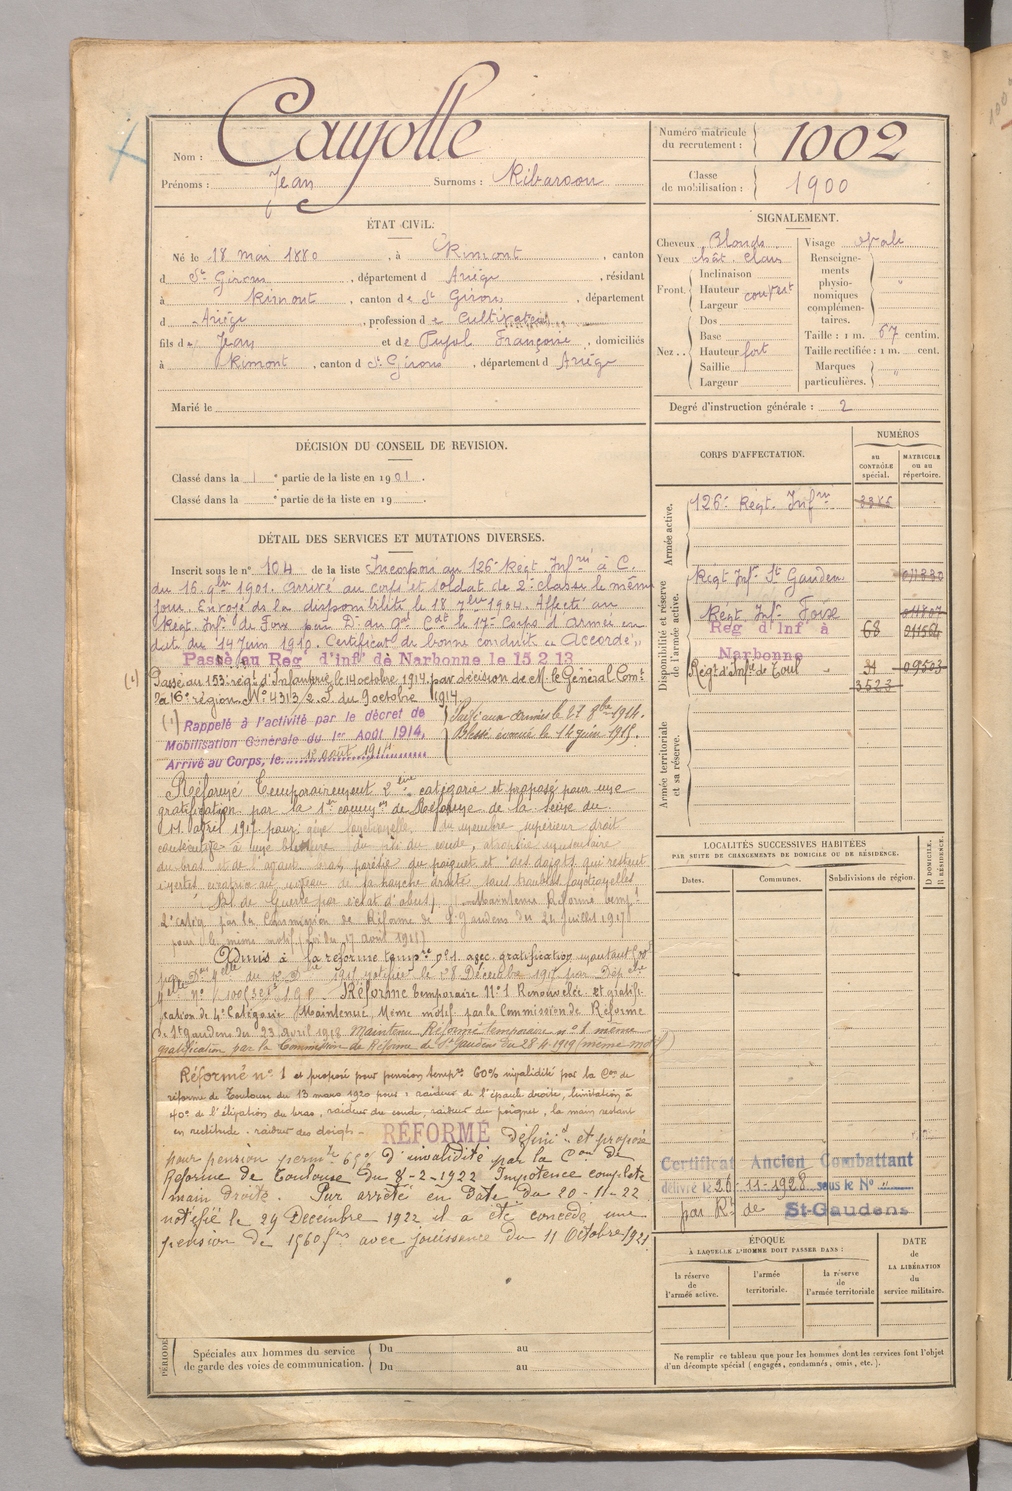 Nom : Caujolle
Prénoms : Jean Surnoms : Ribarson
Numéro matricule du recrutement : 1002
Classe de mobilisation : 1900
ÉTAT CIVIL.
Né le 18 mai 1880, à Rimont, canton
d St Girons, département d Ariège, résidant
à Rimont, canton de St Girons, département
d Ariège, profession de cultivateur
fils de Jean et de Pujol Françoise, domiciliés
à Rimont, canton d St Girons, département d Ariège
Marié le
SIGNALEMENT.
Cheveux Blonds
Yeux chât. clairs
Front. Inclinaison
Hauteur couvert
Largeur
Nez.. Dos
Base
Hauteur fort
Saillie
Largeur
Visage ovale
Renseignements physionomiques complémentaires. "
Taille : 1 m. 67 centim.
Taille rectifiée : 1 m. cent.
Marques particulières. "
Degré d'instruction générale : 2
DÉCISION DU CONSEIL DE REVISION.
Classé dans la 1e partie de la liste en 1901.
Classé dans la e partie de la liste en 19
DÉTAIL DES SERVICES ET MUTATIONS DIVERSES.
Inscrit sous le n° 104 de la liste Incorporé au 126e Régt Infrie à C.
du 16 9bre 1901. Arrivé au corps et soldat de 2e classe le même
jour. Envoyé ds la disponibilité le 18 7bre 1904. Affecté au
Régt Infie de Foix par Don du gal Cdt le 17e Corps d'Armée en
date du 14 Juin 1910. Certificat de bonne conduite "Accordé"
Passé au Reg d'Infie de Narbonne le 15.2.13
Passé au 153e régt d'Infanterie le 14 octobre 1914 par décision de M. le Général Comt
la 16e région N° 4313/2.S. du 9 octobre 1914
(1) Rappelé à l'activité par le décret de
Mobilisation Générale du 1er Août 1914,
Arrivé au Corps, le 12 août 1914
Passé aux armées le 27 8bre 1914.
Blessé évacué le 14 juin 1915.
Réformé Temporairement 2ème catégorie et proposé pour une
gratification par la 1re common de Réforme de la Seine du
11 avril 1917 pour: gêne fonctionnelle du membre supérieur droit
consécutive à une blessure du pli du coude, atrophie musculaire
du bras et de l'avant bras, parésie du poignet et des doigts qui restent
inertes, au niveau de la hanche droite sans troubles fonctionnels
Bl. de Guerre par éclat d'obus. Maintenu Réformé tempt
2e catég. par la Commission de Réforme de St Gaudens du 21 Juillet 1917
pour le même motif
Admis à la réforme tempre n° 1 avec gratification
notifiée le 28 Décembre 1917
Réforme temporaire N° 1 Renouvelée et gratifi-
cation de 4e Catégorie Maintenue, Même motif par la Commission de Réforme
de St Gaudens du 23 avril 1918 Maintenu Réformé temporaire n° 1 même
gratification par la Commission de Réforme de St Gaudens du 28-4-1919 (même motif)
Réformé n° 1 et proposé pour pension tempre 60% invalidité par la Con de
réforme de Toulouse du 13 mars 1920 pour : raideur de l'épaule droite, limitation à
40° de l'élévation du bras, raideur du coude, raideur du poignet, la main restant
en rectitude. raideur des doigts -
RÉFORMÉ définit et proposé
pour pension permte 65% d'invalidité par la Con de
Réforme de Toulouse du 8-2-1922 Impotence complète
main droite. Par arrêté en Date du 20-11-22
notifié le 29 Decembre 1922 il a été concédé une
pension de 1560 frs avec jouissance du 11 Octobre 1921
CORPS D'AFFECTATION.
NUMÉROS
au CONTRÔLE spécial.
MATRICULE ou au répertoire.
Armée active.
126e Régt Infrie
Disponibilité et réserve de l'armée active.
Régt Infie St Gaudens
Régt Infie Foix
Reg d'Infie à Narbonne 68
Régt d'Infie de Toul 09503
3523
Armée territoriale et sa réserve.
LOCALITÉS SUCCESSIVES HABITÉES
PAR SUITE DE CHANGEMENTS DE DOMICILE OU DE RÉSIDENCE.
Dates. Communes. Subdivisions de région. D DOMICILE. R RÉSIDENCE.
Certificat Ancien Combattant
délivré le 26-11-1928 sous le N° "
par Rt de St-Gaudens
ÉPOQUE
À LAQUELLE L'HOMME DOIT PASSER DANS :
la réserve de l'armée active.
l'armée territoriale.
la réserve de l'armée territoriale
DATE de LA LIBÉRATION du service militaire.
Ne remplir ce tableau que pour les hommes dont les services font l'objet
d'un décompte spécial (engagés, condamnés, omis, etc.).
PÉRIODE
Spéciales aux hommes du service de garde des voies de communication.
Du au
Du au